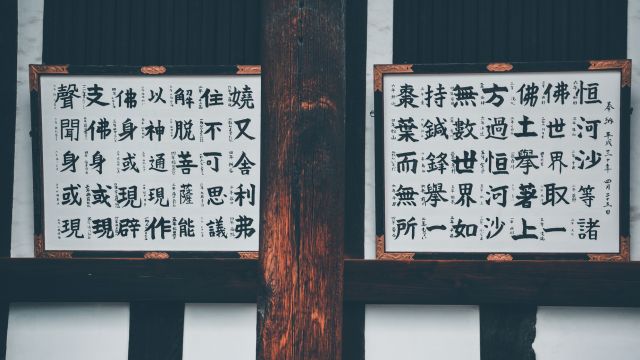 奉納 平成三十年 四月
恒河沙等諸
佛世界取一
佛土舉著上
方過恒河沙
無數世界如
持鍼鋒舉一
棗葉而無所
嬈又舍利弗
住不可思議
解脱菩薩能
以神通現作
佛身或現辟
支佛身或現
聲聞身或現